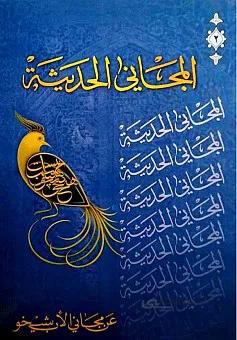 ٢
المجاني الحديثة
المجاني الحديثة
المجاني الحديثة
المجاني الحديثة
المجاني الحديثة
المجاني الحديثة
المجاني الحديثة
المجاني الحديثة
عن مجاني الأب شيخو